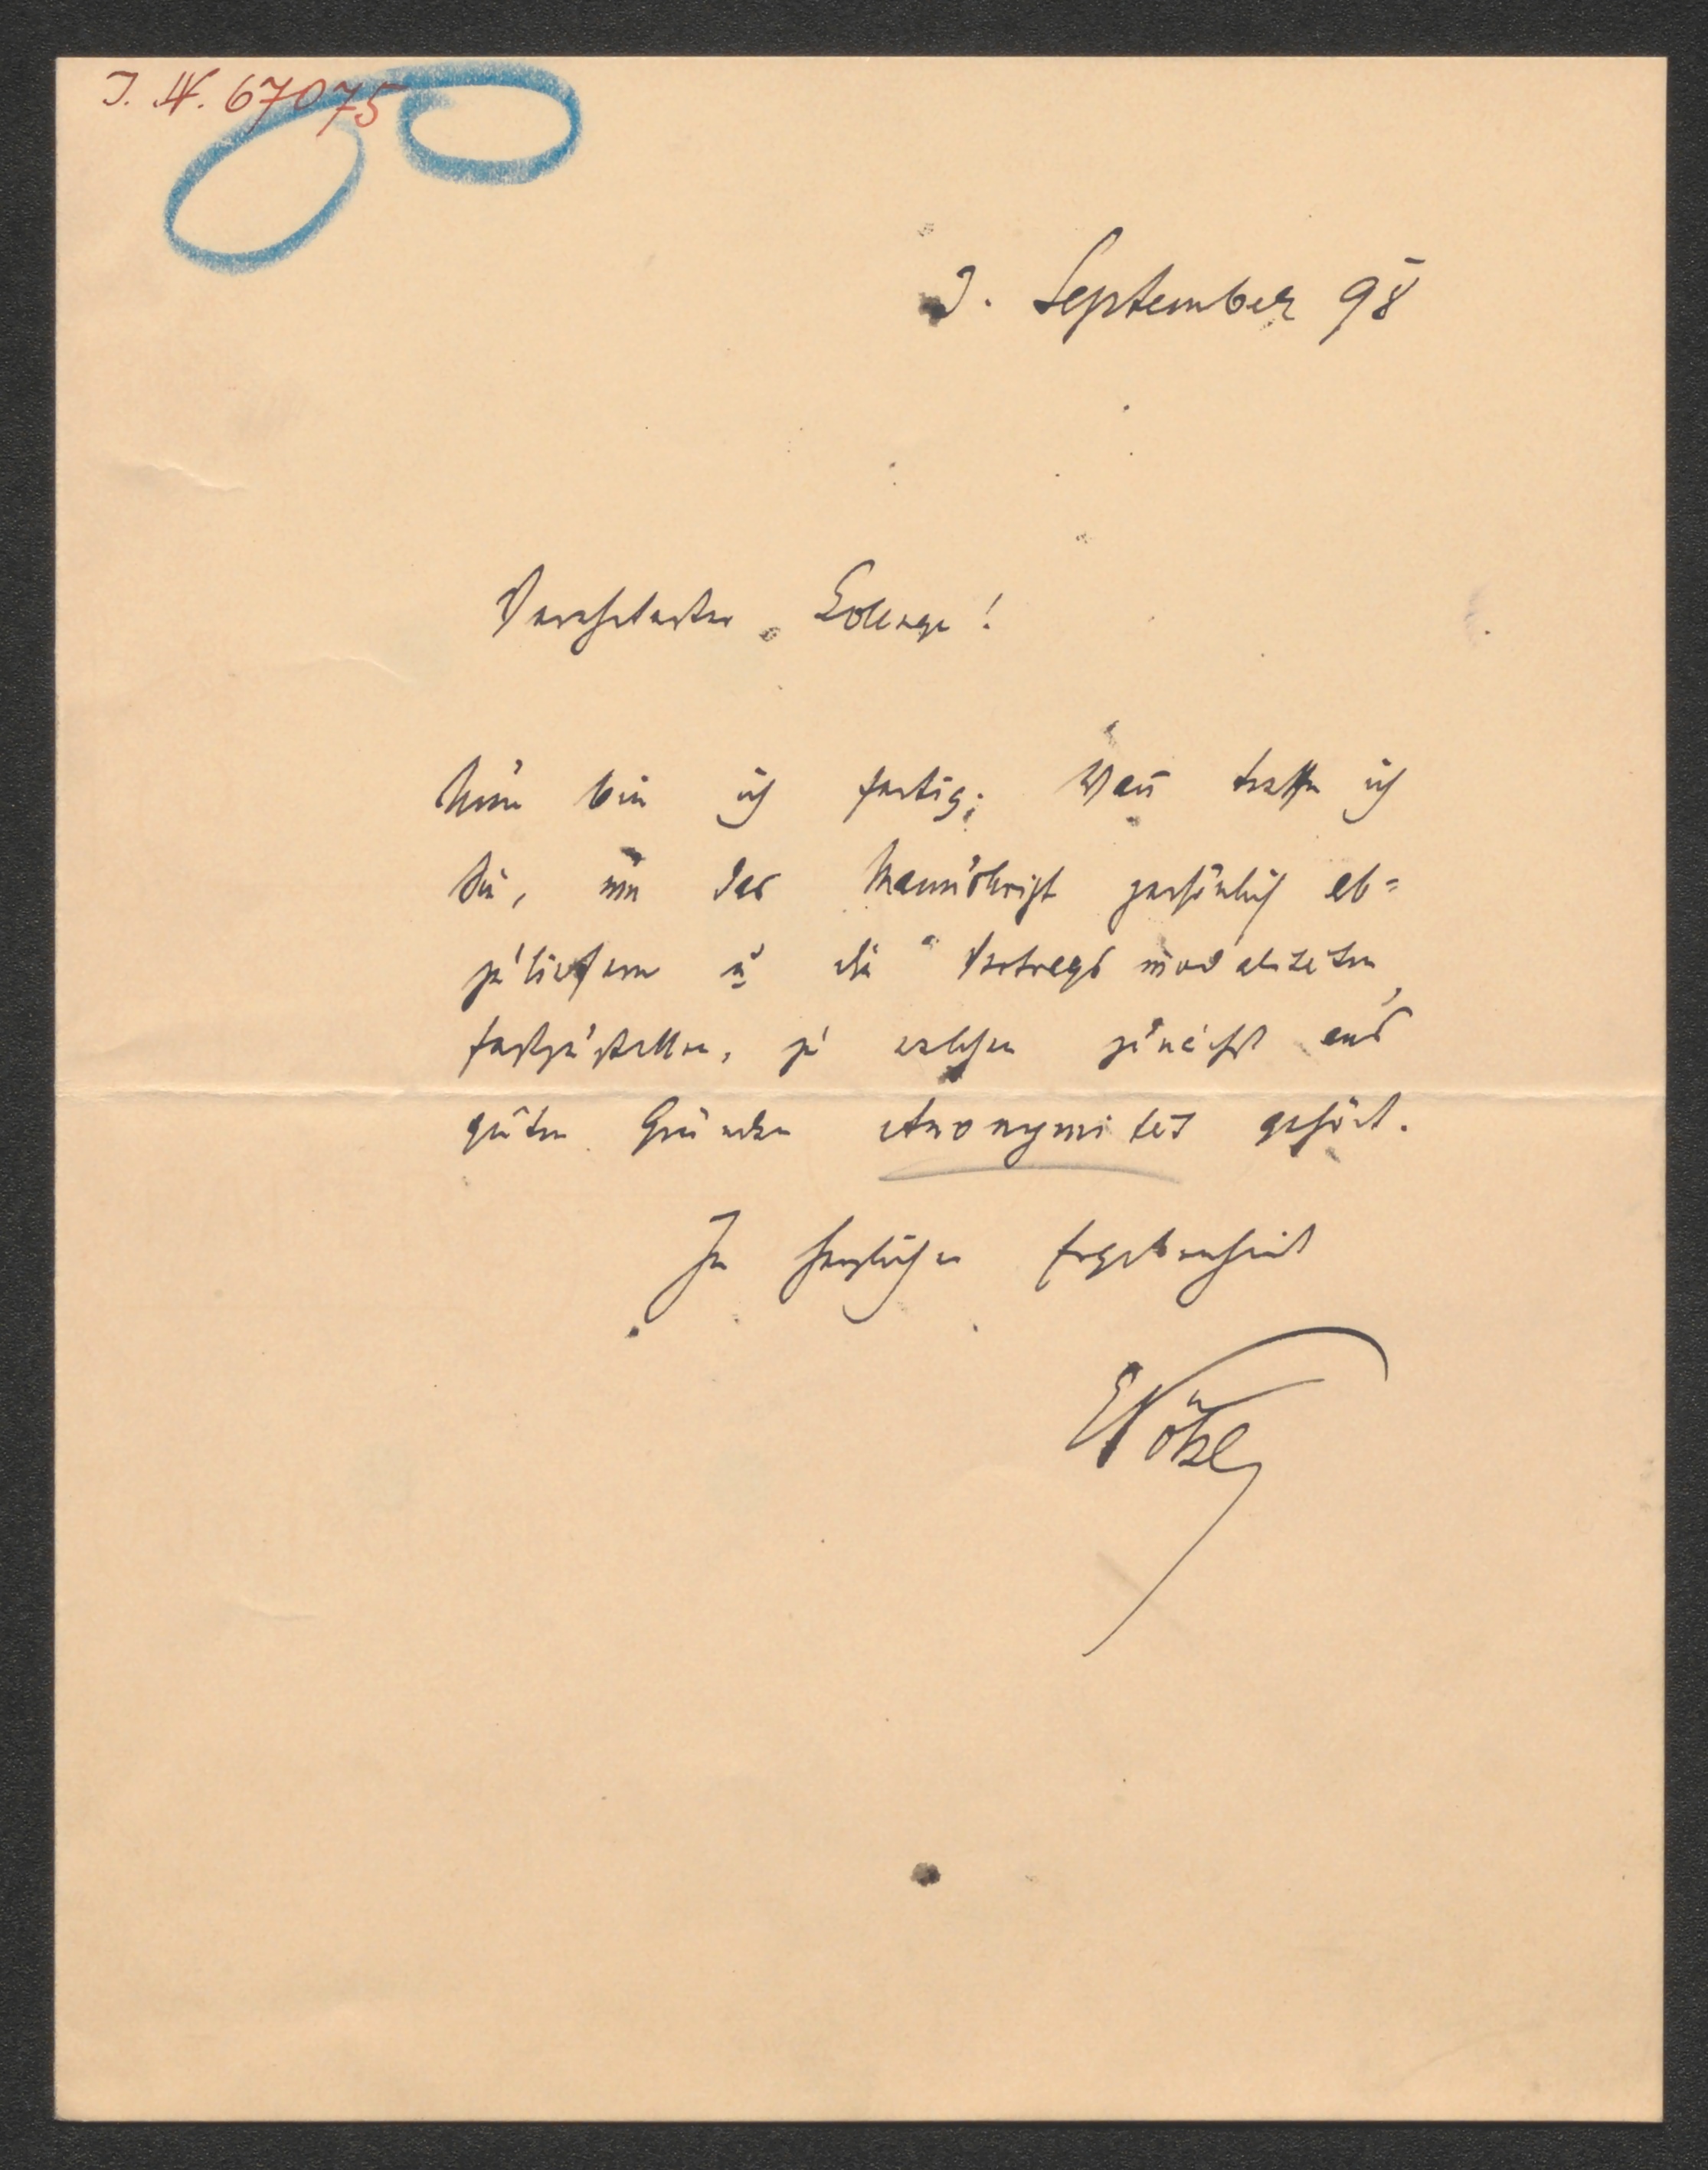 J. N. 67075
3. September 98
Verehrtester College!
Nun bin ich fertig; Wañ treffe ich
Sie, um das Manuskript persönlich ab=
zuliefern u die Vertragsmodalitäten
festzustellen, zu welchen zunächst aus
guten Gründen Anonymität gehört.
In herzlicher Ergebenheit